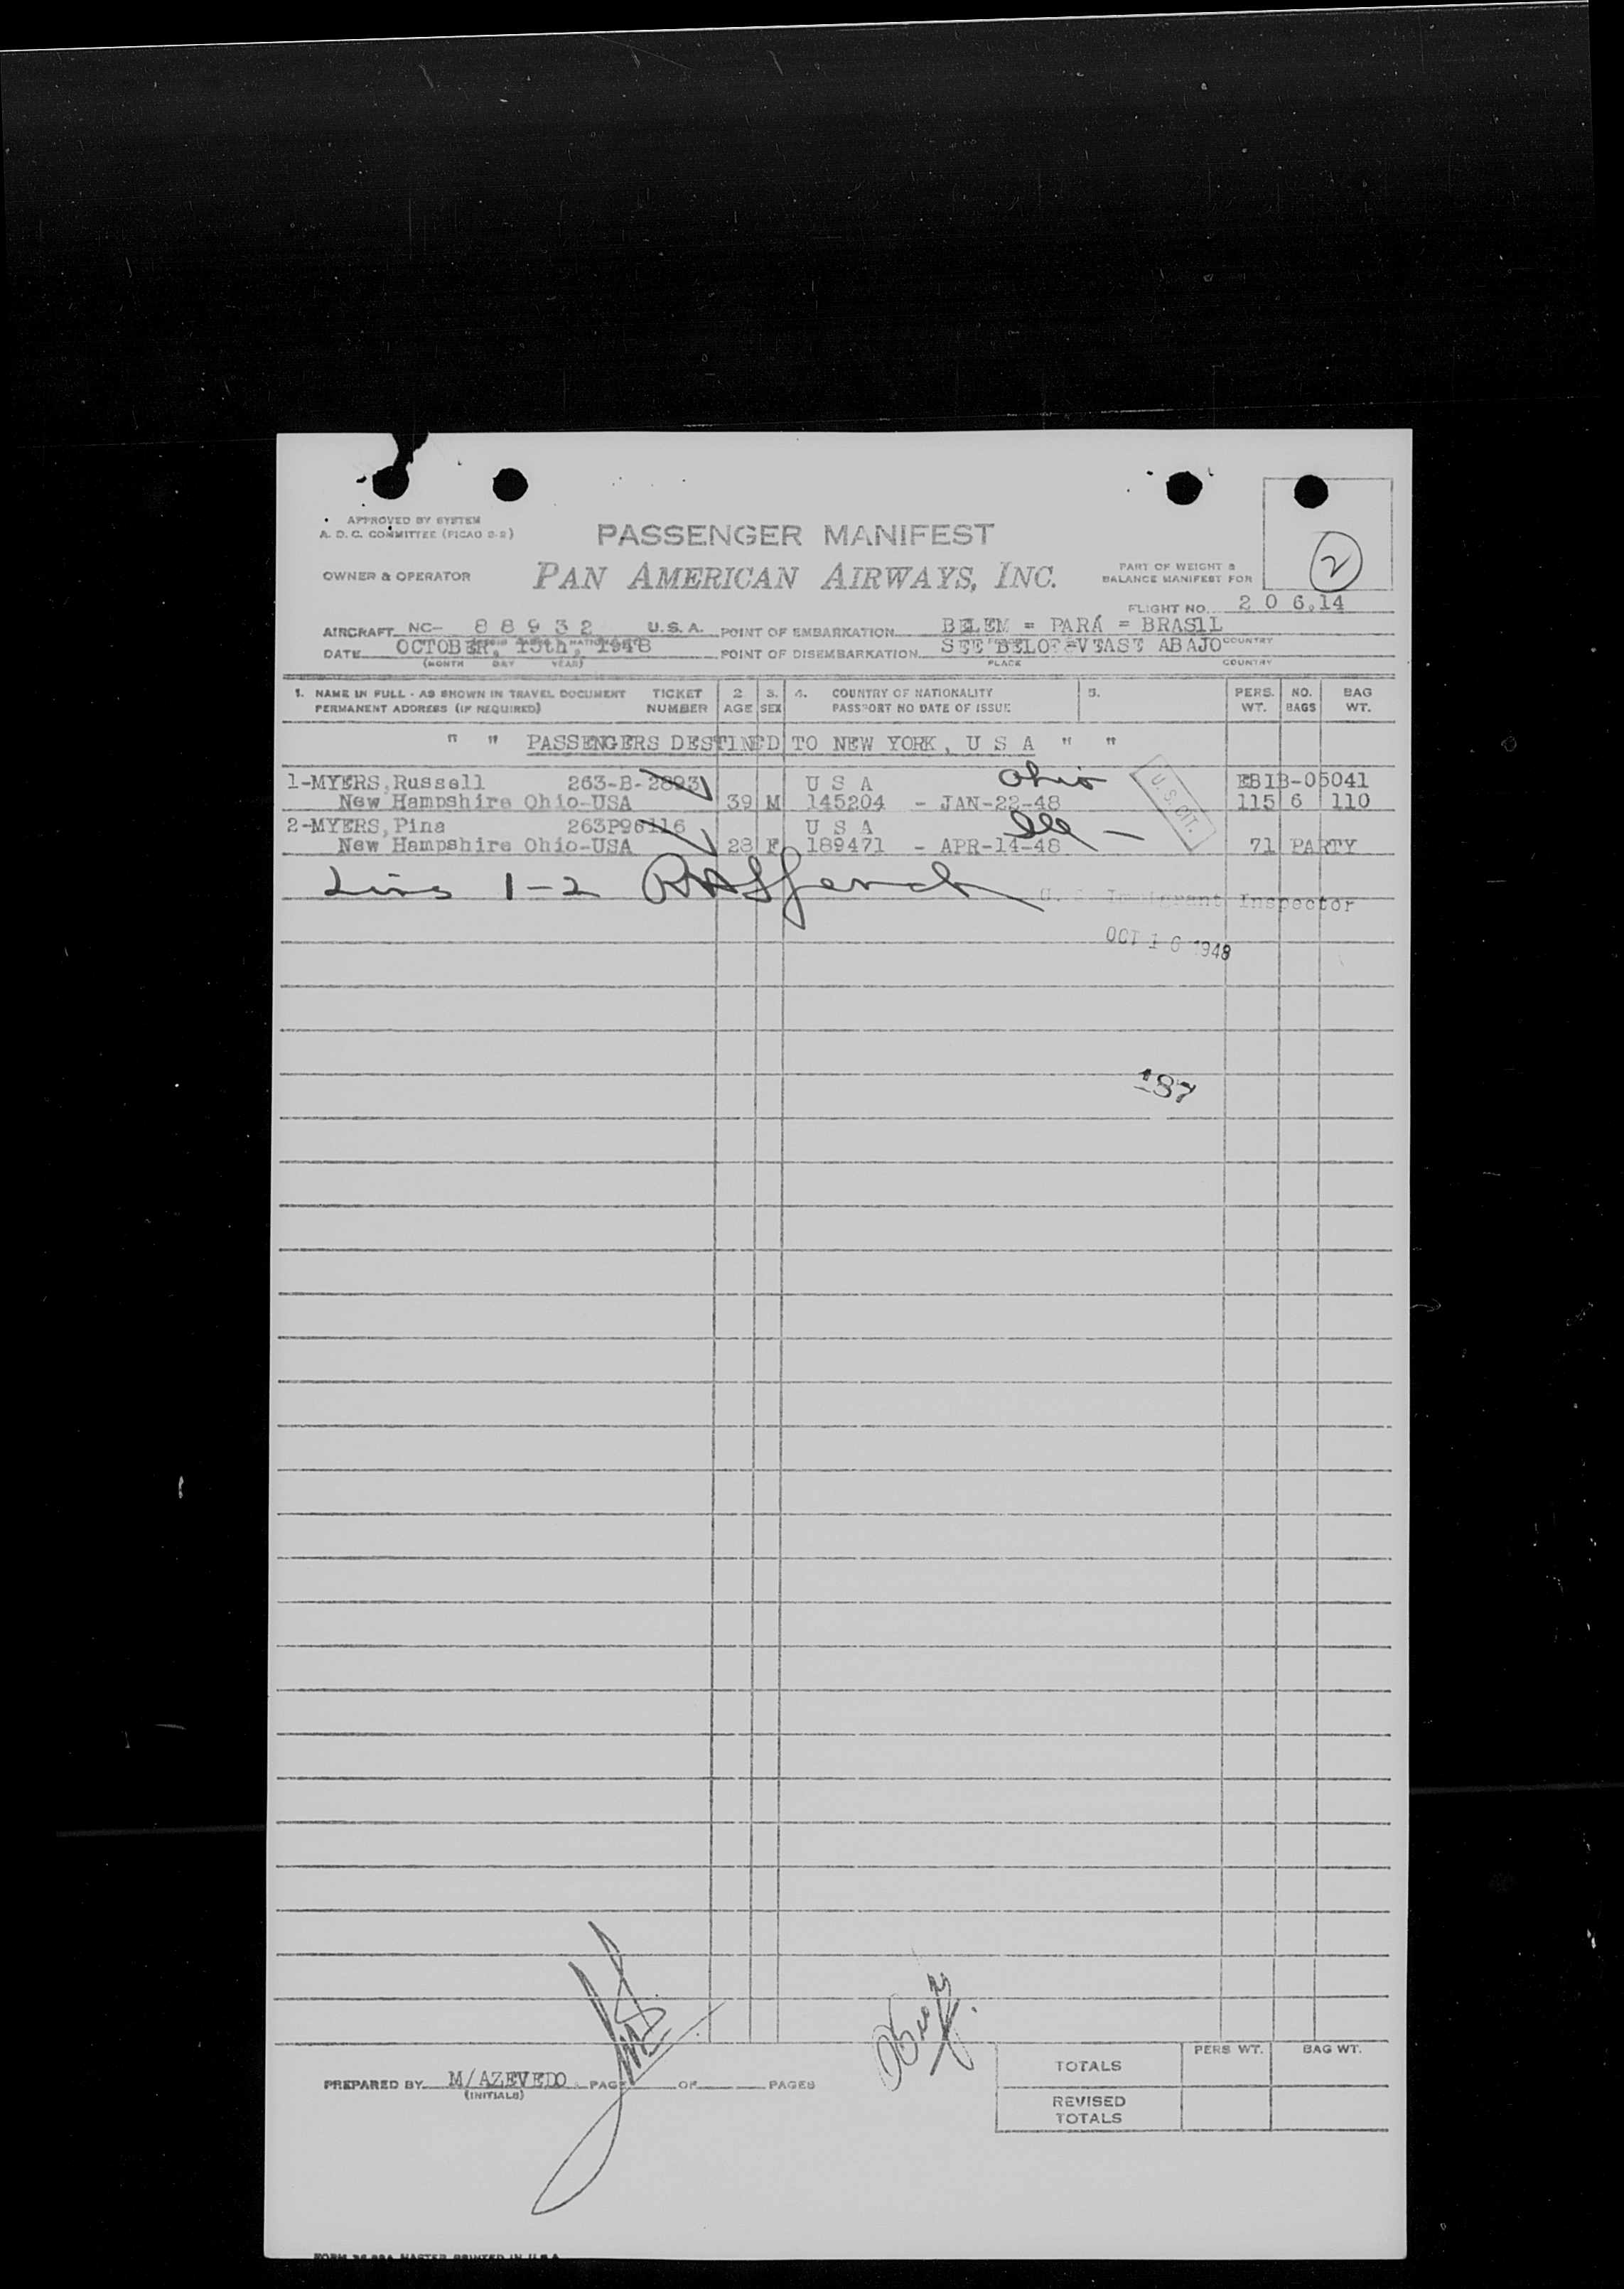 APPROVED BY SYSTEM
A. D. C. COMMITTEE (PICAO 2-2)
PASSENGER MANIFEST
2
OWNER & OPERATOR
PAN AMERICAN AIRWAYS, INC.
PART OF WEIGHT &
BALANCE MANIFEST FOR
FLIGHT NO. 2 0 6.14
AIRCRAFT NC- 8 8 9 3 2 U.S.A. POINT OF EMBARKATION BELEM = PARÁ = BRASIL
DATE OCTOBER, 15th, 1948 POINT OF DISEMBARKATION SEE ABAJO COUNTRY
(MONTH DAY YEAR) PLACE COUNTRY
1. NAME IN FULL - AS SHOWN IN TRAVEL DOCUMENT TICKET 2 3. 4. COUNTRY OF NATIONALITY 5. PERS. NO. BAG
PERMANENT ADDRESS (IF REQUIRED) NUMBER AGE SEX PASSPORT NO DATE OF ISSUE WT. BAGS WT.
" " PASSENGERS DESTINED TO NEW YORK, U S A " "
1-MYERS,Russell 263-B-28931 U S A Ohio U.S. CIT. EBIB-05041
New Hampshire Ohio-USA 39 M 145204 - JAN-22-48 115 6 110
2-MYERS,Pina 263P96116 U S A
New Hampshire Ohio-USA 28 F 189471 - APR-14-48 71 PARTY
1-2
U. S. Immigrant Inspector
OCT 16 1948
187
PREPARED BY M/AZEVEDO PAGE OF PAGES
(INITIALS)
PERS WT. BAG WT.
TOTALS
REVISED
TOTALS